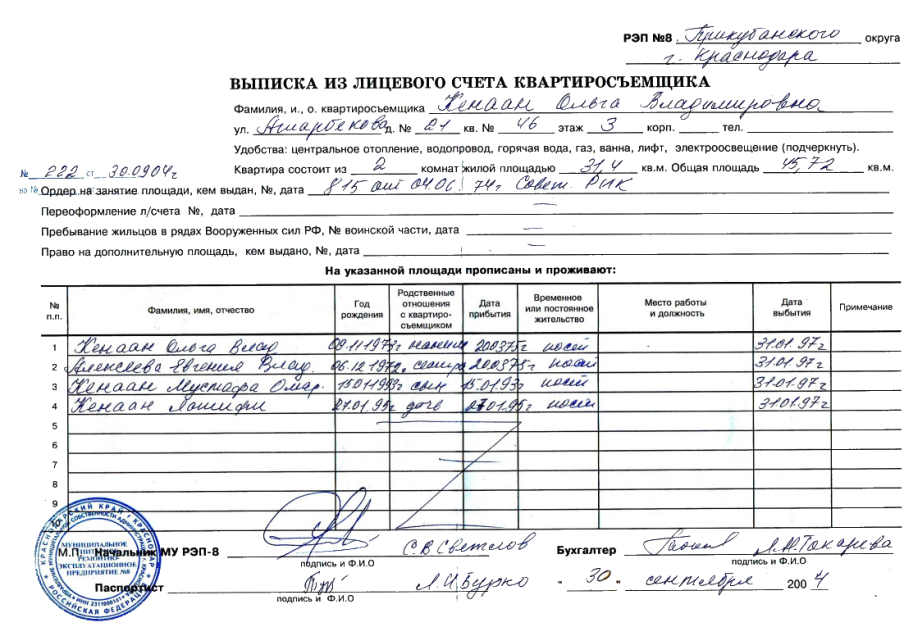 РЭП №8 Прикубанского округа
г. Краснодара
ВЫПИСКА ИЗ ЛИЦЕВОГО СЧЕТА КВАРТИРОСЪЕМЩИКА
Фамилия, и., о. квартиросъемщика Кенаан Ольга Владимировна
ул. Атарбекова д. № 21 кв. № 46 этаж 3 корп. тел.
Удобства: центральное отопление, водопровод, горячая вода, газ, ванна, лифт, электроосвещение (подчеркнуть).
№ 222 от 30.09.04г Квартира состоит из 2 комнат жилой площадью 31,4 кв.м. Общая площадь 45,72 кв.м.
на № Ордер на занятие площади, кем выдан, №, дата 815 от 04.06.74г Совет. РИК
Переоформление л/счета №, дата —
Пребывание жильцов в рядах Вооруженных сил РФ, № воинской части, дата —
Право на дополнительную площадь, кем выдано, №, дата —
На указанной площади прописаны и проживают:
№ п.п. Фамилия, имя, отчество Год рождения Родственные отношения с квартиросъемщиком Дата прибытия Временное или постоянное жительство Место работы и должность Дата выбытия Примечание
1 Кенаан Ольга Влад 200375г пост 31.01.97г
2 Алексеева Евгения Влад. 06.12.1972г сестра 200375 пост 31.01.97г
3 Кенаан Мустафа Омар. 15.01.1993г сын 15.01.93г пост 31.01.97г
4 Кенаан 27.01.95г дочь 27.01.95г пост 31.01.97г
5
6
7
8
9
М.П. Начальник МУ РЭП-8 С В Светлов Бухгалтер Л.М.Токарева
подпись и Ф.И.О подпись и Ф.И.О
Паспортист Л.И.Бурко "30" сентября 2004
подпись и Ф.И.О
КРАСНОДАРСКИЙ КРАЙ г. КРАСНОДАР
РОССИЙСКАЯ ФЕДЕРАЦИЯ
МУНИЦИПАЛЬНОЕ
УНИТАРНОЕ
РЕМОНТНО-
ЭКСПЛУАТАЦИОННОЕ
ПРЕДПРИЯТИЕ №8